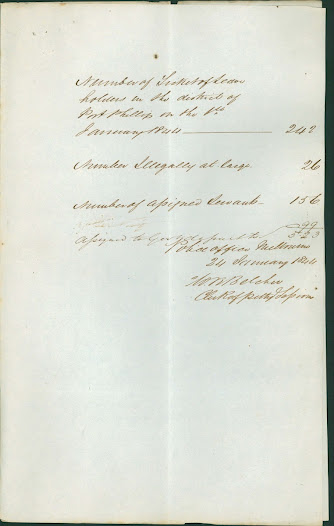 Number of Ticket of Leave
holders in the district of
Port Phillip on the 1st
January 1844 242
Number Illegally at large 26
Number of assigned Servants 156
99
assigned to Gov 523
Police Office Melbourne
24 January 1844
Belcher
Clerk of petty Sessions